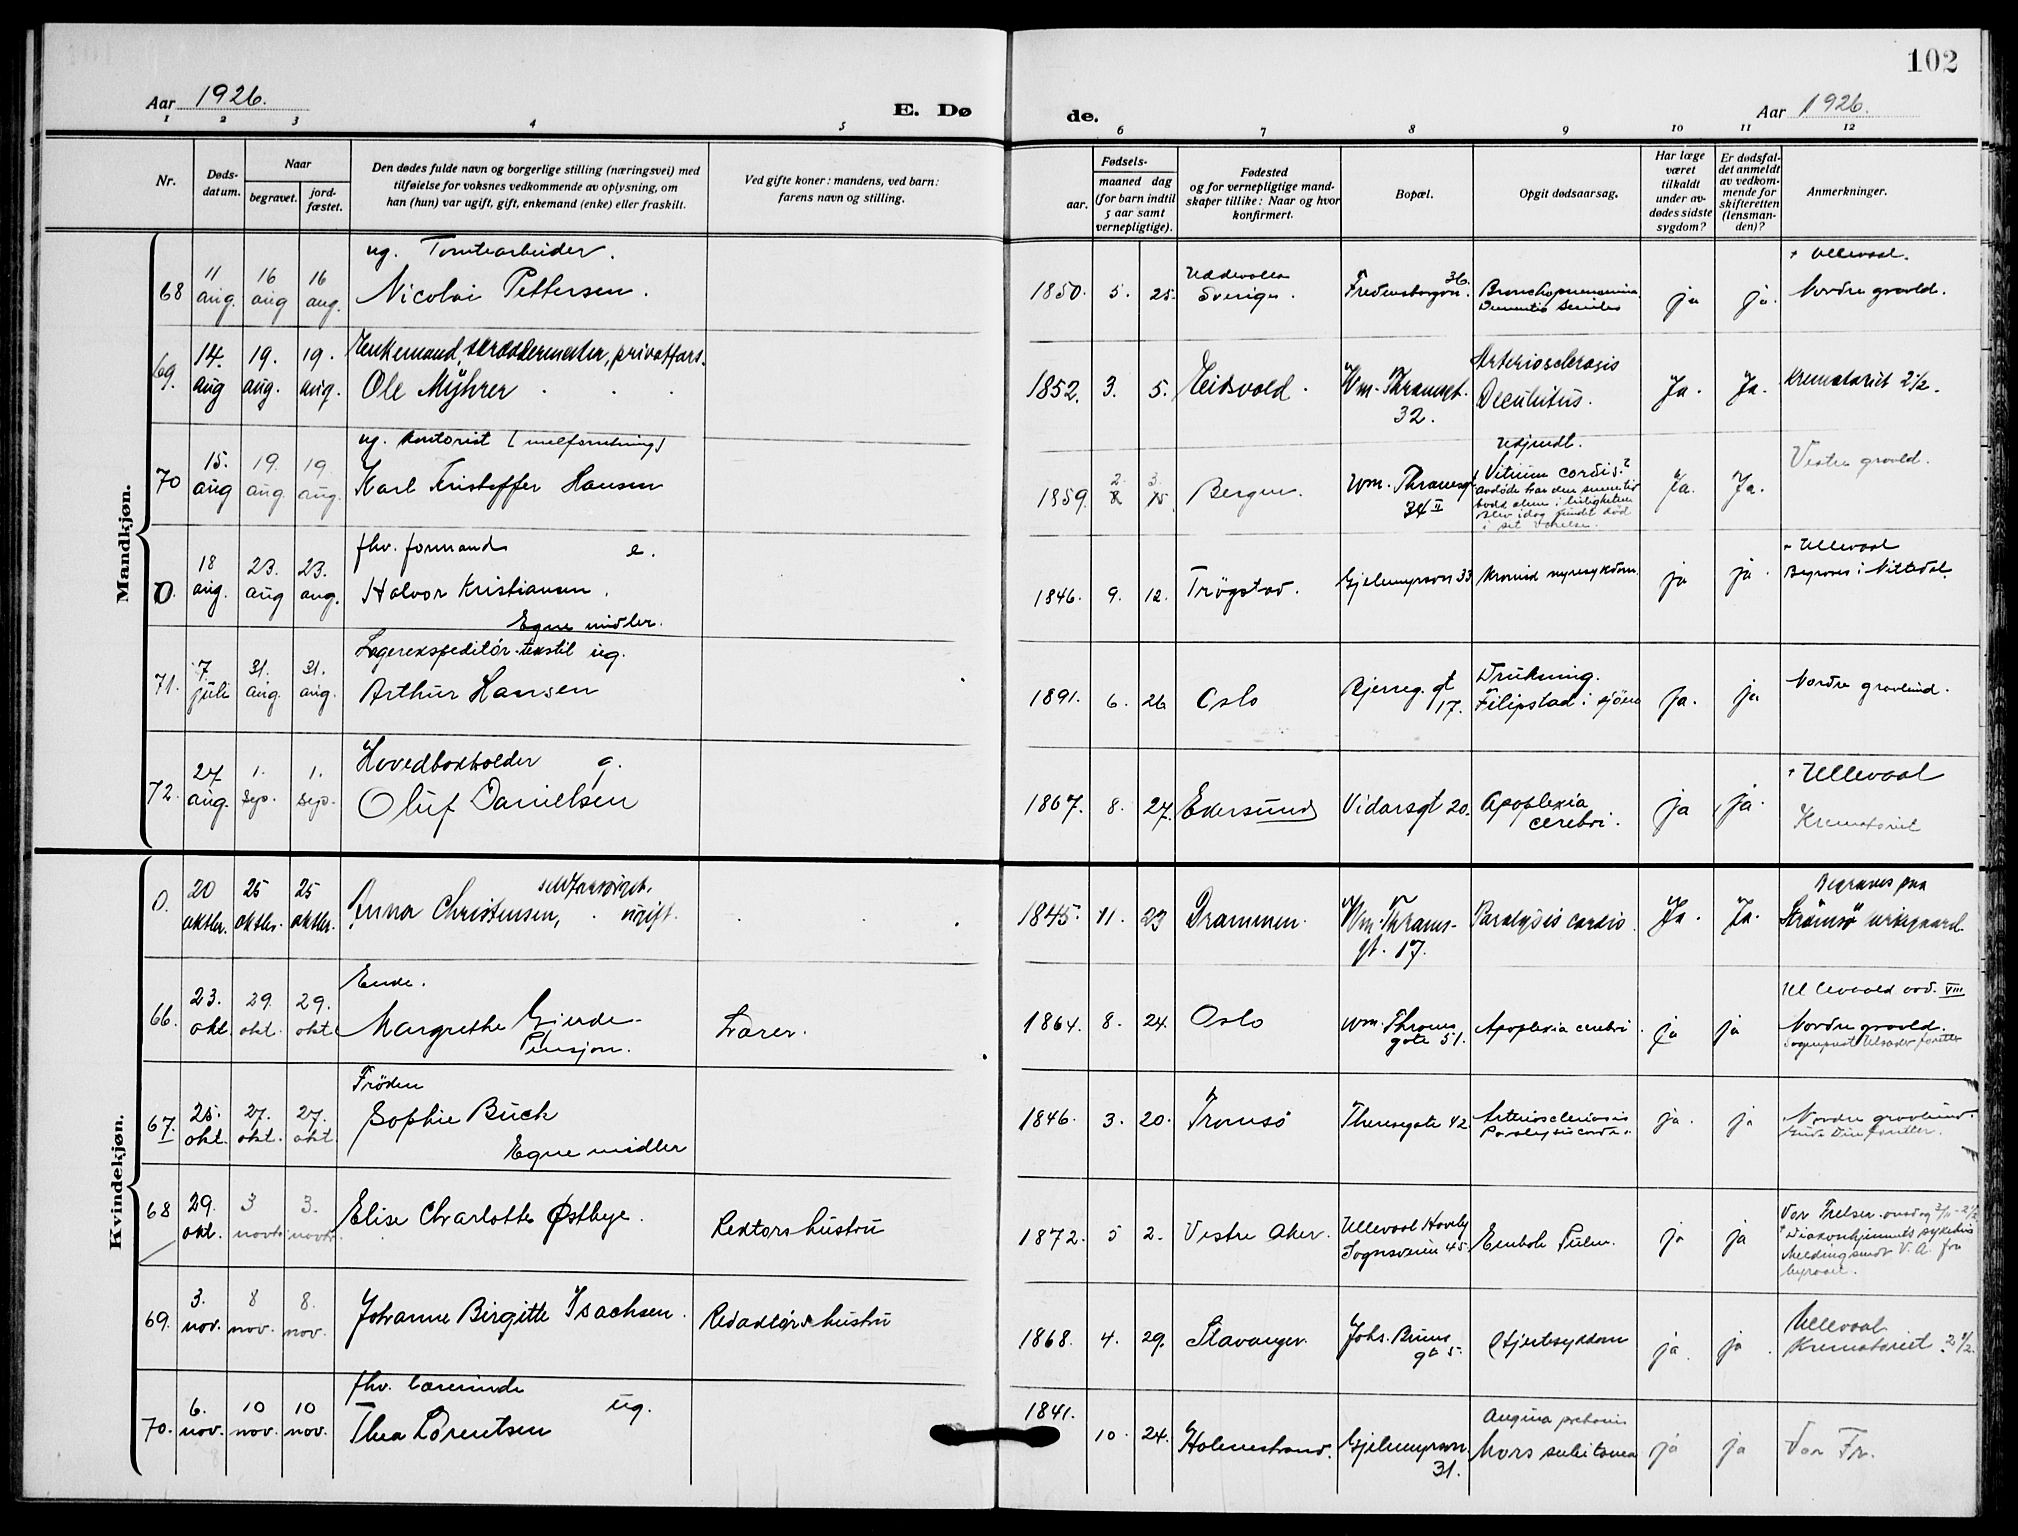 102
Aar 1926.
E. Døde.
Aar 1926.
1 2 3 4 5 6 7 8 9 10 11 12
Nr.
Døds-
datum.
Naar
begravet.
jord-
fæstet.
Den dødes fulde navn og borgerlige stilling (næringsvei) med
tilføielse for voksnes vedkommende av oplysning, om
han (hun) var ugift, gift, enkemand (enke) eller fraskilt.
Ved gifte koner: mandens, ved barn:
farens navn og stilling.
Fødsels-
aar.
maaned dag
(for barn indtil
5 aar samt
vernepligtige).
Fødested
og for vernepligtige mand-
skaper tillike: Naar og hvor
konfirmert.
Bopæl.
Opgit dødsaarsag.
Har læge
været
tilkaldt
under av-
dødes sidste
sygdom?
Er dødsfal-
det anmeldt
av vedkom-
mende for
skifteretten
(lensman-
den)?
Anmerkninger.
Mandkjøn.
ug. Tomtearbeider.
68 11 aug. 16 aug 16 aug. Nicolai Pettersen.
1850. 5. 25. Uddevalla Sverige. Fredensborgvn. 36. Bronchopneumonia Dementia senilis ja ja. + Ullevaal. Nordre gravld.
Enkemand, skræddermester, privatfors.
69. 14. aug 19. aug. 19. aug. Ole Myhrer
1852. 3. 5. Eidsvold. Wm. Thranesgt. 32. Arteriosclerosis Decubitus. Ja. Ja. Krematoriet 2 1/2.
ug. kontorist (melforretning)
70 15. aug 19. aug. 19 aug. Karl Kristoffer Hansen
1859. 2. 3. Bergen. Wm. Thranesgt. 34 II Vitium cordis? i set værelse. Ja. Ja. Vestre gravld.
fhv. formand e.
0. 18 aug. 23. aug 23. aug. Halvor Kristiansen.
Egne midler.
1846. 9. 12. Trögstad. Gjetemyrsvn 33 Kronisk nyresykdom ja ja. + Ullevaal Begraves i Nittedal.
Lagerekspeditör-tekstil ug.
71. 7. juli 31. aug. 31. aug. Arthur Hansen
1891. 6. 26 Oslo Bjerreg. gt 17. Drukning. Filipstad i sjöen Ja. ja Nordre gravlund.
Hovedbokholder g.
72. 27 aug. 1. sep. 1. sep. Oluf Danielsen
1867. 8. 27. Ekersund Vidarsgt 20. Apoplexia cerebri. ja ja. + Ullevaal Krematoriet
Kvindekjøn.
0. 20 oktbr. 25 oktbr. 25 oktbr. Anna Christensen, selvforsörget. ugift.
1845. 11. 23 Drammen. Wm. Thranes-gt. 17. Paralysis cordis. Ja. Ja. Begraves paa Strömsö kirkegaard.
Enke.
66. 23. okt. 29. okt. 29. okt. Margrethe Gjerde- Lærer.
Pensjon.
1864. 8. 24. Oslo Wm. Thranes gate 51. Apoplexia cerebri. ja ja Ullevaal avd. VIII Nordre gravld.
Fröken
67. 25. okt. 27. okt. 27. okt. Sophie Buck
Egne midler
1846. 3. 20. Tromsö Theresegate 42 Arteriosclerosis Paralysis cordis. ja. ja Nordre gravlund.
68 29. okt. 3 novbr 3. novbr. Elise Charlotte Østbye. Rektors hustru
1872. 5 2. Vestre Aker. Ullevaal Haveby Sognsveien 45 Emboli Pulm. ja ja Vor Frelser. onsdag 3/11 - 2 1/2 + Diakonhjemmets sykehus Melding sendt V. A. fra byraaet.
69. 3. nov. 8 nov. 8. nov. Johanne Birgitte Isachsen. Redaktørs hustru
1868. 4. 29. Stavanger. Johs. Bruns gt 5. Hjertesykdom ja. ja. Ullevaal Krematoriet. 2 1/2.
fhv. lærerinde
70. 6. nov. 10 nov. 10 nov. Thea Lorentsen ug.
1841. 10. 24. Holmestrand. Gjetemyrsvn. 31. Angina pectoris Mors subitanea ja ja Vor Fr.